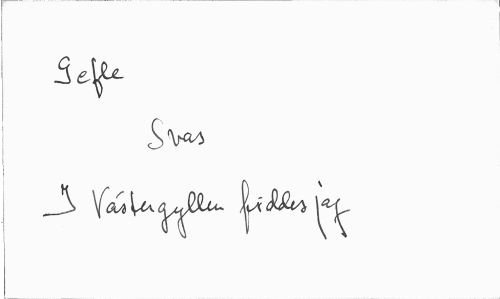 Gefle
Svas
I Västergyllen fiddes jag